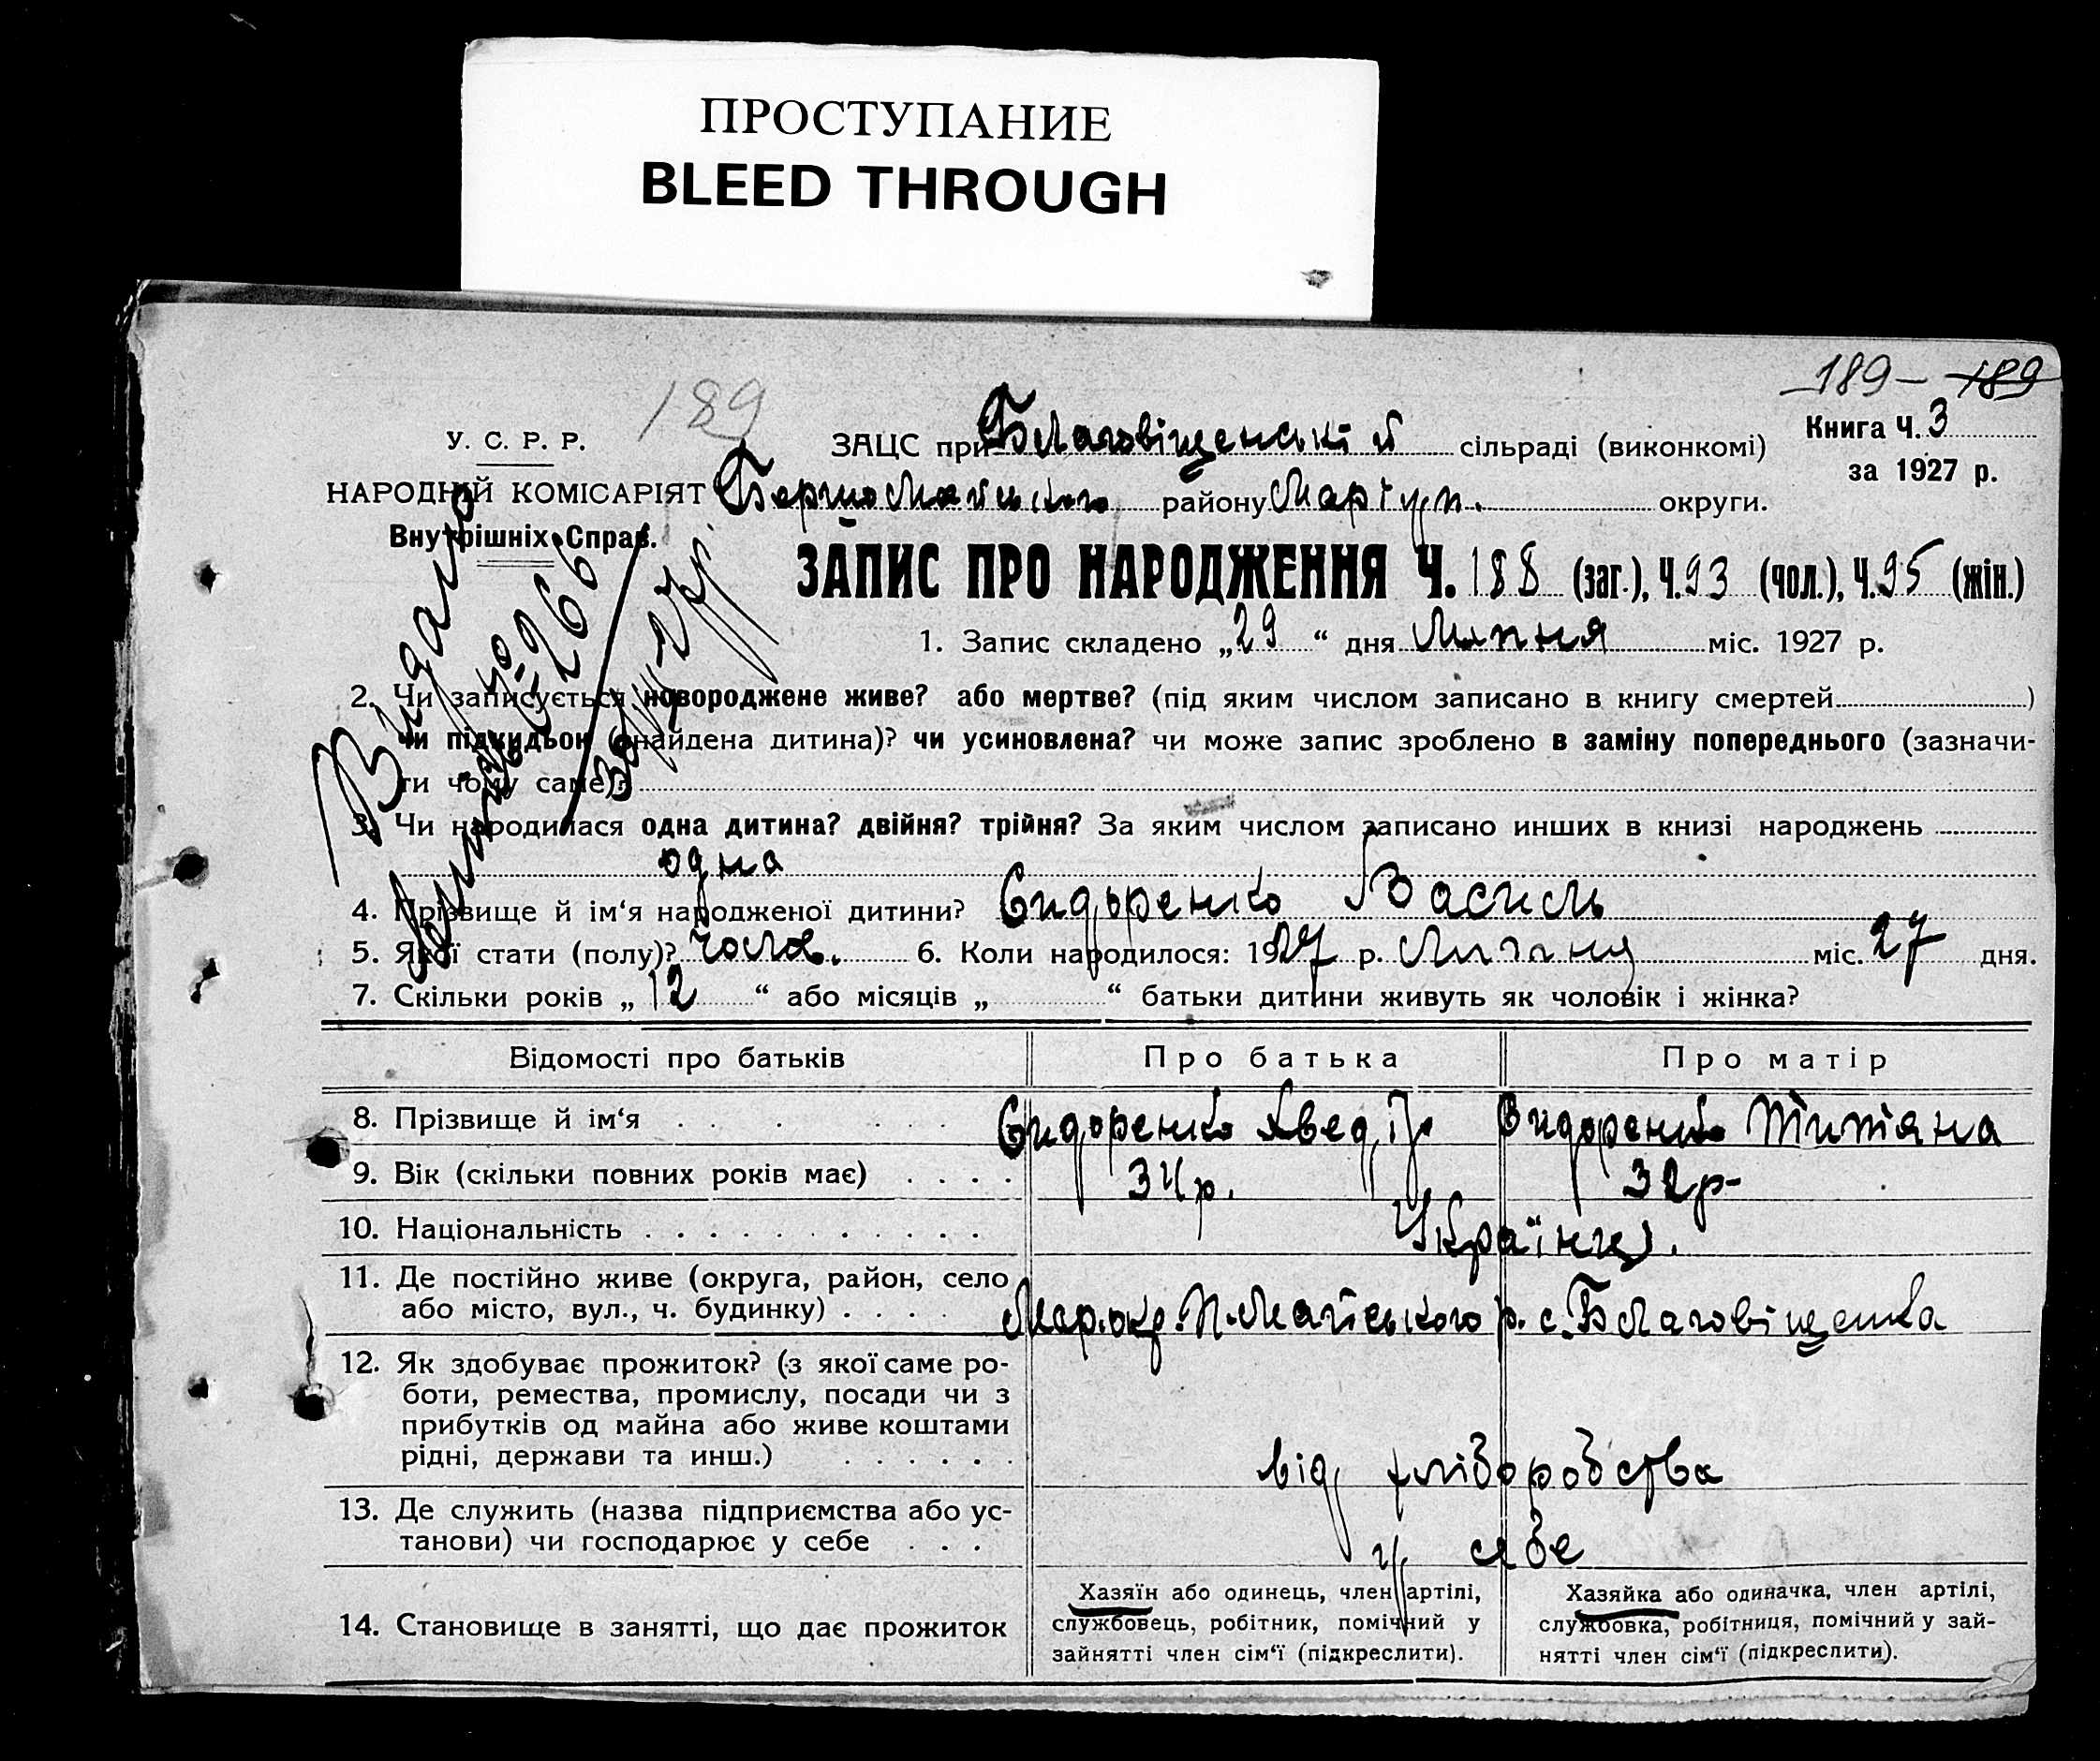 ПРОСТУПАНИЕ
BLEED THROUGH
189 — 189
189
У. С. Р. Р.
ЗАЦС при Благовіщенській сільраді (виконкомі)
Книга Ч. 3
за 1927 р.
НАРОДНІЙ КОМІСАРІЯТ
Внутрішніх Справ.
Першо Майського району Маріуп. округи.
ЗАПИС ПРО НАРОДЖЕННЯ Ч. 188 (заг.), Ч. 93 (чол.), Ч. 95 (жін.)
1. Запис складено „29“ дня Липня міс. 1927 р.
Видано
266
2. Чи записується новороджене живе? або мертве? (під яким числом записано в книгу смертей)
чи підкидьок (знайдена дитина)? чи усиновлена? чи може запис зроблено в заміну попереднього (зазначи-
ти чому саме)?
3. Чи народилася одна дитина? двійня? трійня? За яким числом записано инших в книзі народжень
одна
4. Прізвище й ім‘я народженої дитини? Сидоренко Василь
5. Якої стати (полу)? чолов. 6. Коли народилося: 1927 р. Липня міс. 27 дня.
7. Скільки років „12“ або місяців „ “ батьки дитини живуть як чоловік і жінка?
Відомості про батьків Про батька Про матір
8. Прізвище й ім‘я Сидоренко Сидоренко Титяна
9. Вік (скільки повних років має) 34 р. 32 р.
10. Національність Українці.
11. Де постійно живе (округа, район, село
або місто, вул., ч. будинку) Мар. окр. П. Майського р. с. Благовіщенка
12. Як здобуває прожиток? (з якої саме ро-
боти, ремества, промислу, посади чи з
прибутків од майна або живе коштами
рідні, держави та инш.) від хліборобства
13. Де служить (назва підприємства або ус-
танови) чи господарює у себе у себе
14. Становище в занятті, що дає прожиток
Хазяїн або одинець, член артілі,
службовець, робітник, помічний у
зайнятті член сім‘ї (підкреслити).
Хазяйка або одиначка, член артілі,
службовка, робітниця, помічний у зай-
нятті член сім‘ї (підкреслити).